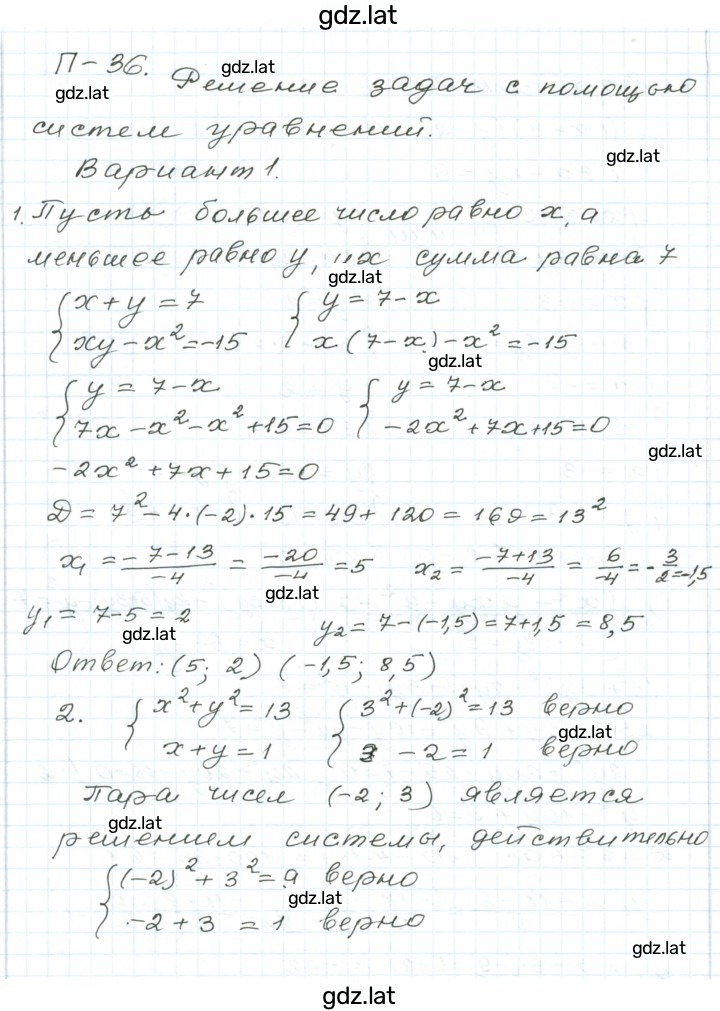 gdz.lat
П-36. Решение задач с помощью
gdz.lat
gdz.lat
систем уравнений.
gdz.lat
Вариант 1.
1. Пусть большее число равно x, а
меньшее равно y, их сумма равна 7
gdz.lat
{ x + y = 7 { y = 7 - x
{ xy - x² = -15 { x (7 - x) - x² = -15
gdz.lat
{ y = 7 - x { y = 7 - x
{ 7x - x² - x² + 15 = 0 { -2x² + 7x + 15 = 0
gdz.lat
-2x² + 7x + 15 = 0
D = 7² - 4·(-2)·15 = 49 + 120 = 169 = 13²
x₁ = (-7-13)/-4 = -20/-4 = 5 x₂ = (-7+13)/-4 = 6/-4 = -3/2 = -1,5
gdz.lat
y₁ = 7-5 = 2 y₂ = 7-(-1,5) = 7+1,5 = 8,5
gdz.lat
Ответ: (5; 2) (-1,5; 8,5)
2. { x² + y² = 13 { 3² + (-2)² = 13 верно
gdz.lat
{ x + y = 1 { 3 - 2 = 1 верно
Пара чисел (-2; 3) является
gdz.lat
решением системы, действительно
{ (-2)² + 3² = 9 верно
gdz.lat
{ -2 + 3 = 1 верно
gdz.lat
gdz.lat